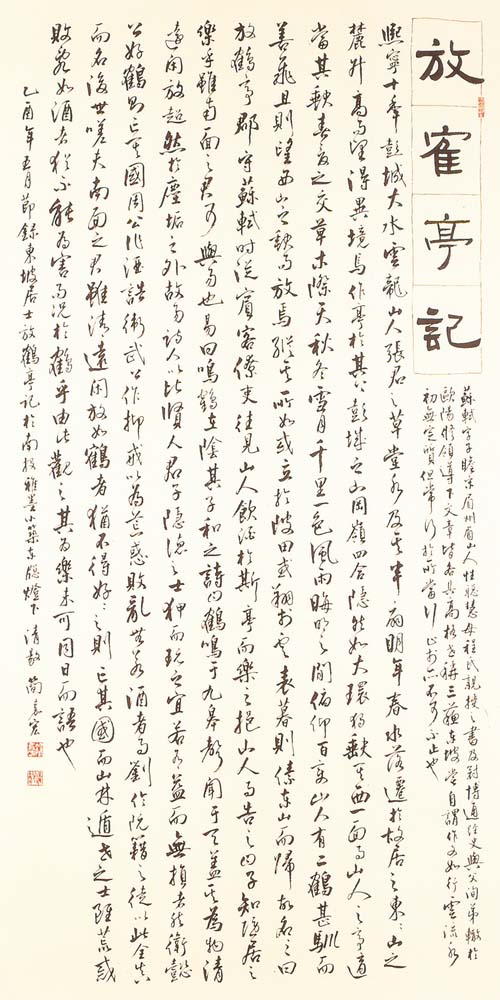 放寉亭記
蘇軾字子瞻宋眉州眉山人性聰慧母程氏親授之書及冠博通經史與父洵弟轍於
歐陽修領導下文章皆各具高格世稱三蘇東坡嘗自謂作文如行雲流水
初無定質但常行於所當行止於所不可不止也
熙寧十年彭城大水雲龍山人張君之草堂水及其半扉明年春水落遷於故居之東〻山之
麓升高而望得異境焉作亭於其上彭城之山岡嶺四合隱然如大環獨缺其西一面而山人之亭適
當其缺春夏之交草木際天秋冬雪月千里一色風雨晦明之間俯仰百變山人有二鶴甚馴而
善飛旦則望西山之缺而放焉縱其所如或立於陂田或翔於雲表暮則傃東山而歸故名之曰
放鶴亭郡守蘇軾時從賓客僚吏往見山人飲酒於斯亭而樂之挹山人而告之曰子知隱居之
樂乎雖南面之君可與易也易曰鳴鶴在陰其子和之詩曰鶴鳴于九皋聲聞于天蓋其為物清
遠閑放超然於塵垢之外故易詩人以比賢人君子隱德之士狎而玩之宜若有益而無損者然衛懿
公好鶴則亡其國周公作酒誥衛武公作抑戒以為荒惑敗亂無若酒者而劉伶阮籍之徒以此全其真
而名後世嗟夫南面之君雖清遠閑放如鶴者猶不得好〻之則亡其國而山林遁世之士雖荒惑
敗亂如酒者猶不能為害而況於鶴乎由此觀之其為樂未可同日而語也
乙酉年五月節錄東坡居士放鶴亭記於南投雅墨小築東窗燈下 清敦 簡嘉宏